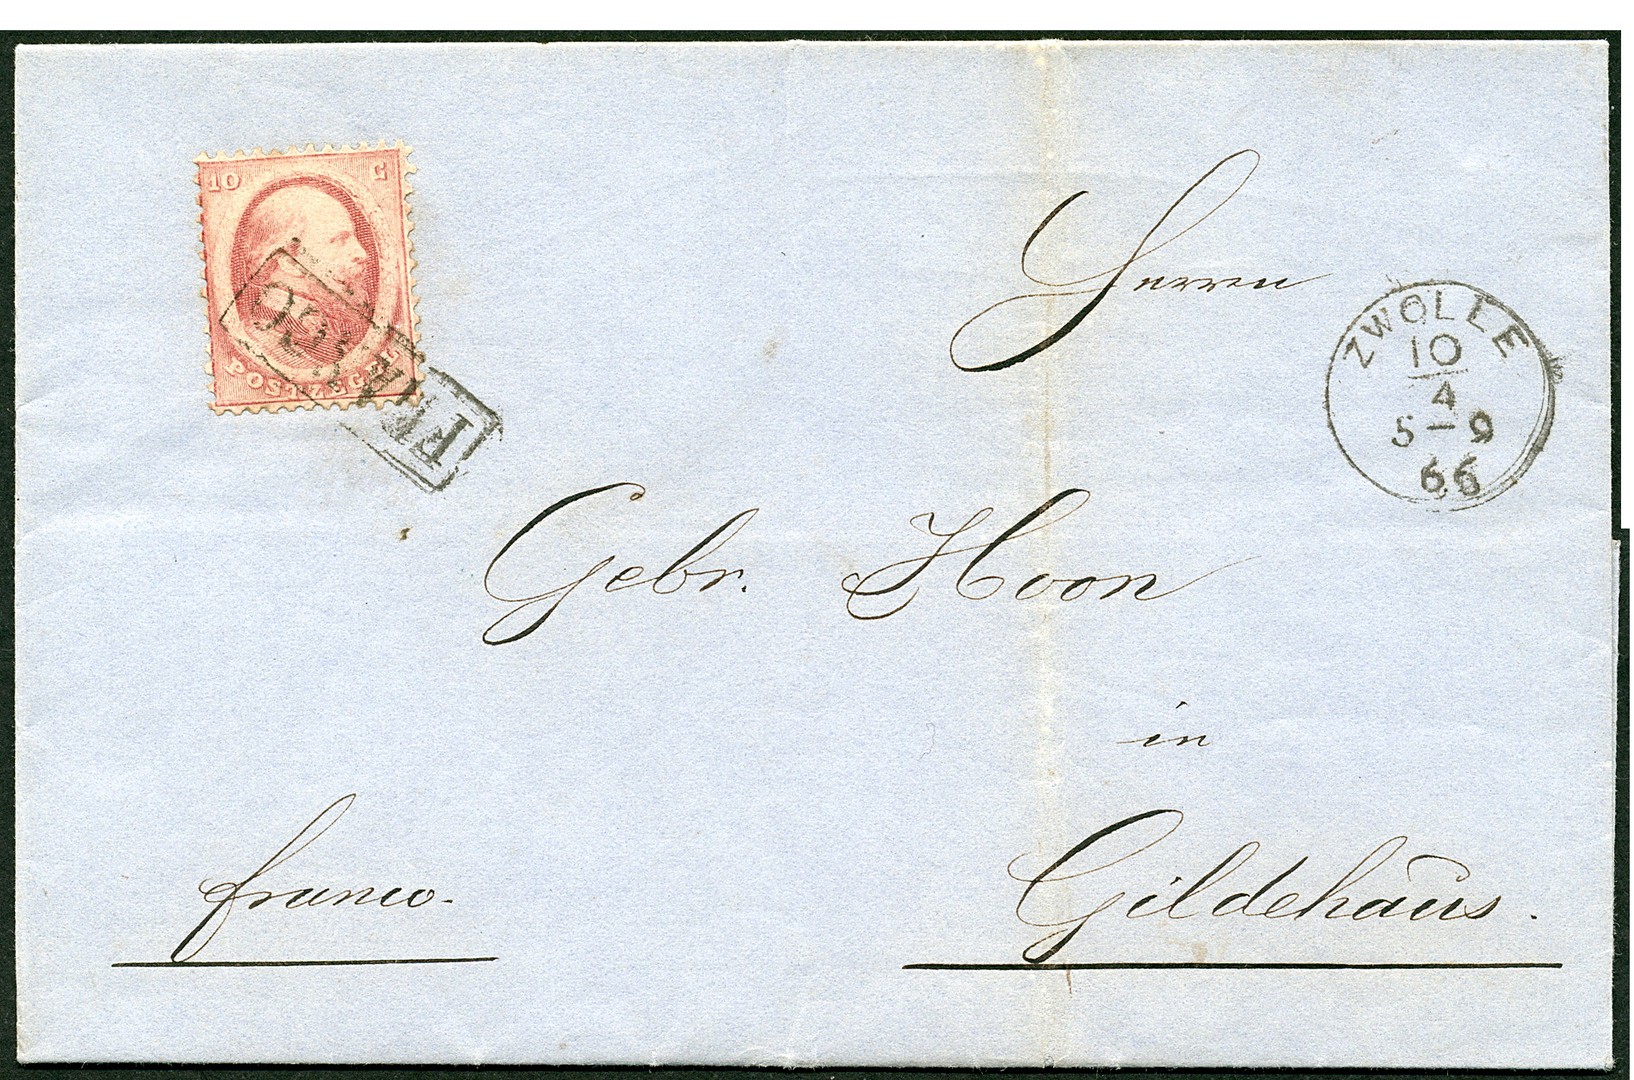 10 C
POSTZEGEL
FRANCO
Herren
ZWOLLE
10
4
5-9
66
Gebr. Hoon
in
franco.
Gildehaus.